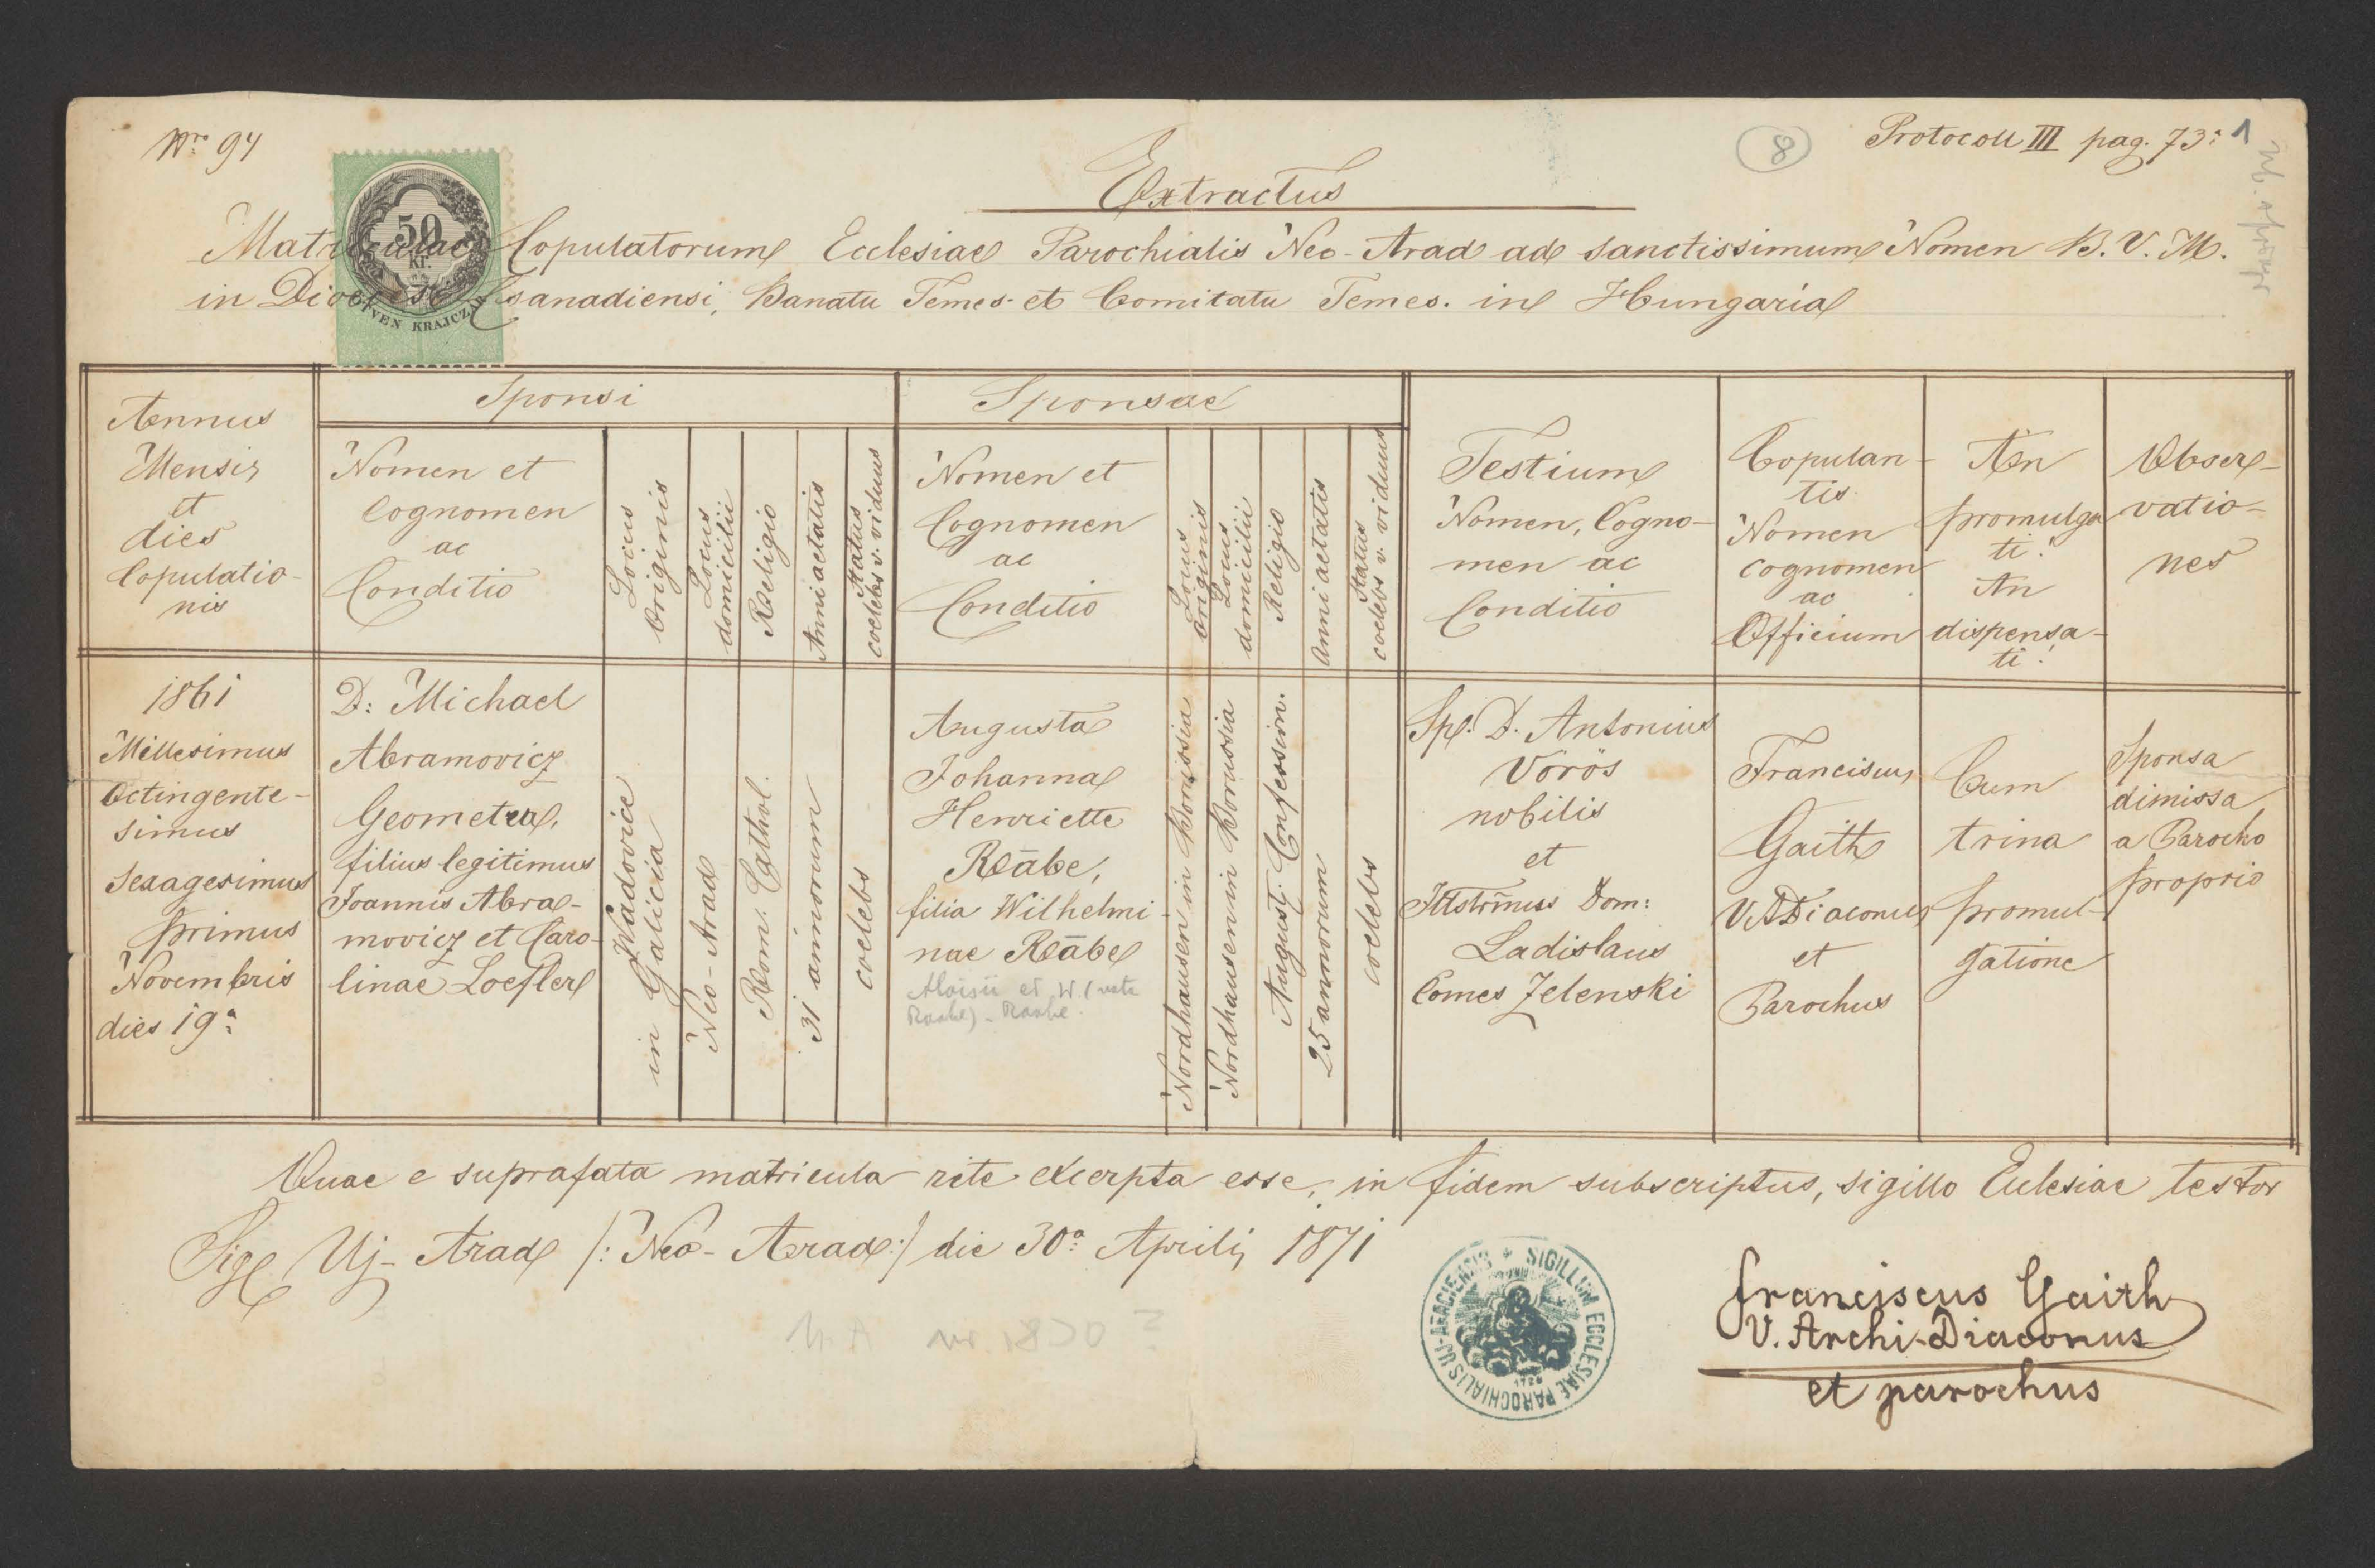 Nro 94
8
Protocoll III pag. 73a 1
Extractus
Matriculae Copulatorum Ecclesiae Parochialis Neo-Arad ad sanctissimum Nomen B. V. M.
in Dioecesi Csanadiensi, Banatu Temes- et Comitatu Temes. in Hungaria
50
Kr.
ÖTVEN KRAJCZÁR
Annus
Mensis
et
dies
Copulatio-
nis
Sponsi
Nomen et
Cognomen
ac
Conditio
Locus
Originis
Locus
domicilii
Religio
Anni aetatis
Status
coelebs v. viduus
Sponsae
Nomen et
Cognomen
ac
Conditio
Locus
originis
Locus
domicilii
Religio
Anni aetatis
Status
coelebs v. viduus
Testium
Nomen, Cogno-
men ac
Conditio
Copulan-
tis
Nomen
cognomen
ac
Officium
An
promulga
ti?
An
dispensa-
ti?
Obser-
vatio-
nes
1861
Millesimus
Octingente-
simus
Sexagesimus
primus
Novembris
dies 19a
D: Michael
Abramovicz
Geometra,
filius legitimus
Joannis Abra-
movicz et Caro-
linae Loefler
Wadovice
in Galicia
Neo-Arad
Rom. Cathol.
31 annorum
coelebs
Augusta
Johanna
Henriette
Rābe,
filia Wilhelmi-
nae Rābe
Aloisii et W. (nata
Raabe) - Raabe.
Nordhausen in Borussia
Nordhausen in Borussia
August. Confession.
25 annorum
coelebs
Spl. D. Antonius
Vörös
nobilis
et
Illstrmus Dom:
Ladislaus
Comes Zelenski
Franciscus
Gaith
V. A. Diaconus
et
Parochus
Cum
trina
promul-
gatione
Sponsa
dimissa
a Parocho
proprio
Quae e suprafata matricula rite excerpta esse, in fidem subscriptus, sigillo Ecclesiae testor
Sigl Uj-Arad /: Neo-Arad :/ die 30a Aprilis 1871
SIGILLUM ECCLESIAE PAROCHIALIS UJ-ARACIENSIS
1728
Franciscus Gaith
V. Archi-Diaconus
et parochus